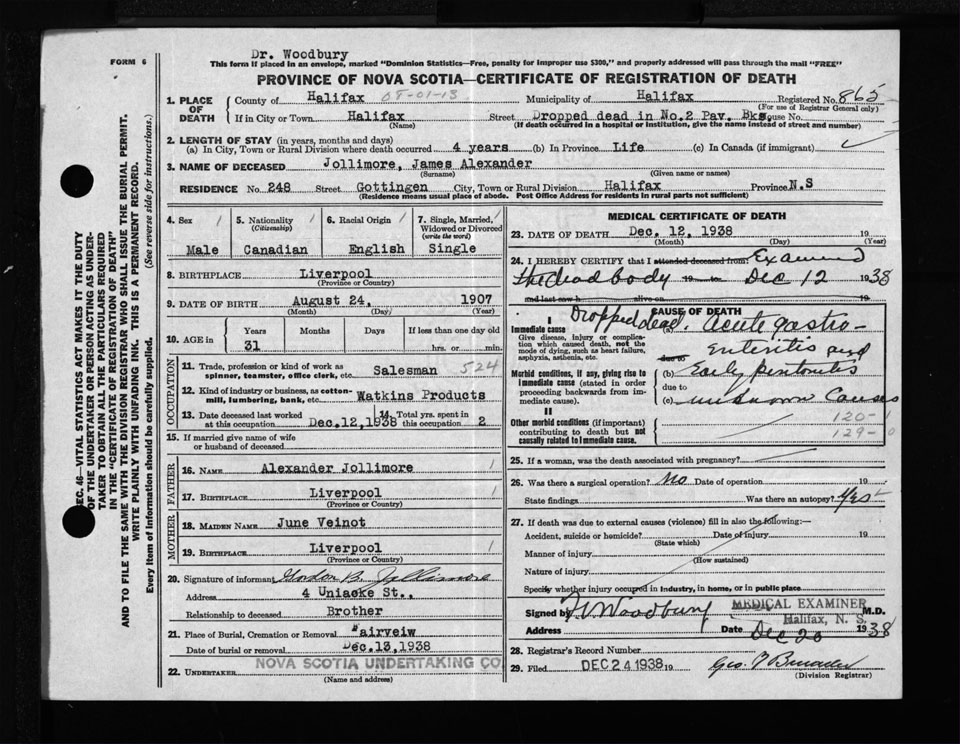 Dr. Woodbury
FORM 6
This form if placed in an envelope, marked "Dominion Statistics—Free, penalty for improper use $300," and properly addressed will pass through the mail "FREE"
PROVINCE OF NOVA SCOTIA—CERTIFICATE OF REGISTRATION OF DEATH
1. PLACE OF DEATH
County of Halifax 08-01-13 Municipality of Halifax Registered No. 865
(For use of Registrar General only)
If in City or Town Halifax Street Dropped dead in No.2 Pav. Bks. House No.
(Name) (If death occurred in a hospital or institution, give the name instead of street and number)
2. LENGTH OF STAY (in years, months and days)
(a) In City, Town or Rural Division where death occurred 4 years (b) In Province Life (c) In Canada (if immigrant)
3. NAME OF DECEASED Jollimore, James Alexander
(Surname) (Given name or names)
RESIDENCE No. 248 Street Gottingen City, Town or Rural Division Halifax Province N.S
(Residence means usual place of abode. Post Office Address for residents in rural parts not sufficient)
4. Sex
Male
5. Nationality
(Citizenship)
Canadian
6. Racial Origin
English
7. Single, Married, Widowed or Divorced
(write the word)
Single
8. BIRTHPLACE Liverpool
(Province or Country)
9. DATE OF BIRTH August 24, 1907
(Month) (Day) (Year)
10. AGE in Years Months Days If less than one day old
31 hrs. or min.
OCCUPATION
11. Trade, profession or kind of work as spinner, teamster, office clerk, etc. Salesman 524
12. Kind of industry or business, as cotton-mill, lumbering, bank, etc. Watkins Products
13. Date deceased last worked at this occupation Dec,12,1938
14. Total yrs. spent in this occupation 2
15. If married give name of wife or husband of deceased
FATHER
16. NAME Alexander Jollimore
17. BIRTHPLACE Liverpool
(Province or Country)
MOTHER
18. MAIDEN NAME June Veinot
19. BIRTHPLACE Liverpool
(Province or Country)
20. Signature of informant Gordon B. Jollimore
Address 4 Uniacke St.,
Relationship to deceased Brother
21. Place of Burial, Cremation or Removal Fairveiw
Date of burial or removal Dec.13,1938
22. UNDERTAKER NOVA SCOTIA UNDERTAKING CO
(Name and address)
MEDICAL CERTIFICATE OF DEATH
23. DATE OF DEATH Dec. 12, 1938 19
(Month) (Day) (Year)
24. I HEREBY CERTIFY that I attended deceased from Examined
the dead body 19 Dec 12 1938
and last saw h alive on 19
CAUSE OF DEATH
I
Immediate cause
Give disease, injury or complication which caused death, not the mode of dying, such as heart failure, asphyxia, asthenia, etc.
Dropped dead. (a) Acute gastro-
due to Enteritis and
Morbid conditions, if any, giving rise to immediate cause (stated in order proceeding backwards from immediate cause).
(b) Early peritonitis
due to
(c) unknown Causes
II
Other morbid conditions (if important) contributing to death but not causally related to immediate cause.
120-1
129-0
25. If a woman, was the death associated with pregnancy?
26. Was there a surgical operation? No Date of operation 19
State findings Was there an autopsy? Yes
27. If death was due to external causes (violence) fill in also the following:—
Accident, suicide or homicide? Date of injury 19
(State which)
Manner of injury
(How sustained)
Nature of injury
Specify whether injury occurred in industry, in home, or in public place
Signed by Woodbury MEDICAL EXAMINER M.D.
Halifax, N. S.
Address Date Dec 20 1938
28. Registrar's Record Number
29. Filed DEC 24 1938 19
(Division Registrar)
SEC. 46—VITAL STATISTICS ACT MAKES IT THE DUTY
OF THE UNDERTAKER OR PERSON ACTING AS UNDER-
TAKER TO OBTAIN ALL THE PARTICULARS REQUIRED
IN THE "CERTIFICATE OF REGISTRATION OF DEATH"
AND TO FILE THE SAME WITH THE DIVISION REGISTRAR WHO SHALL ISSUE THE BURIAL PERMIT.
WRITE PLAINLY WITH UNFADING INK. THIS IS A PERMANENT RECORD.
Every item of Information should be carefully supplied. (See reverse side for instructions.)